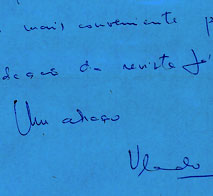 mais conveniente p
dação da revista já
Um abraço
Vlado